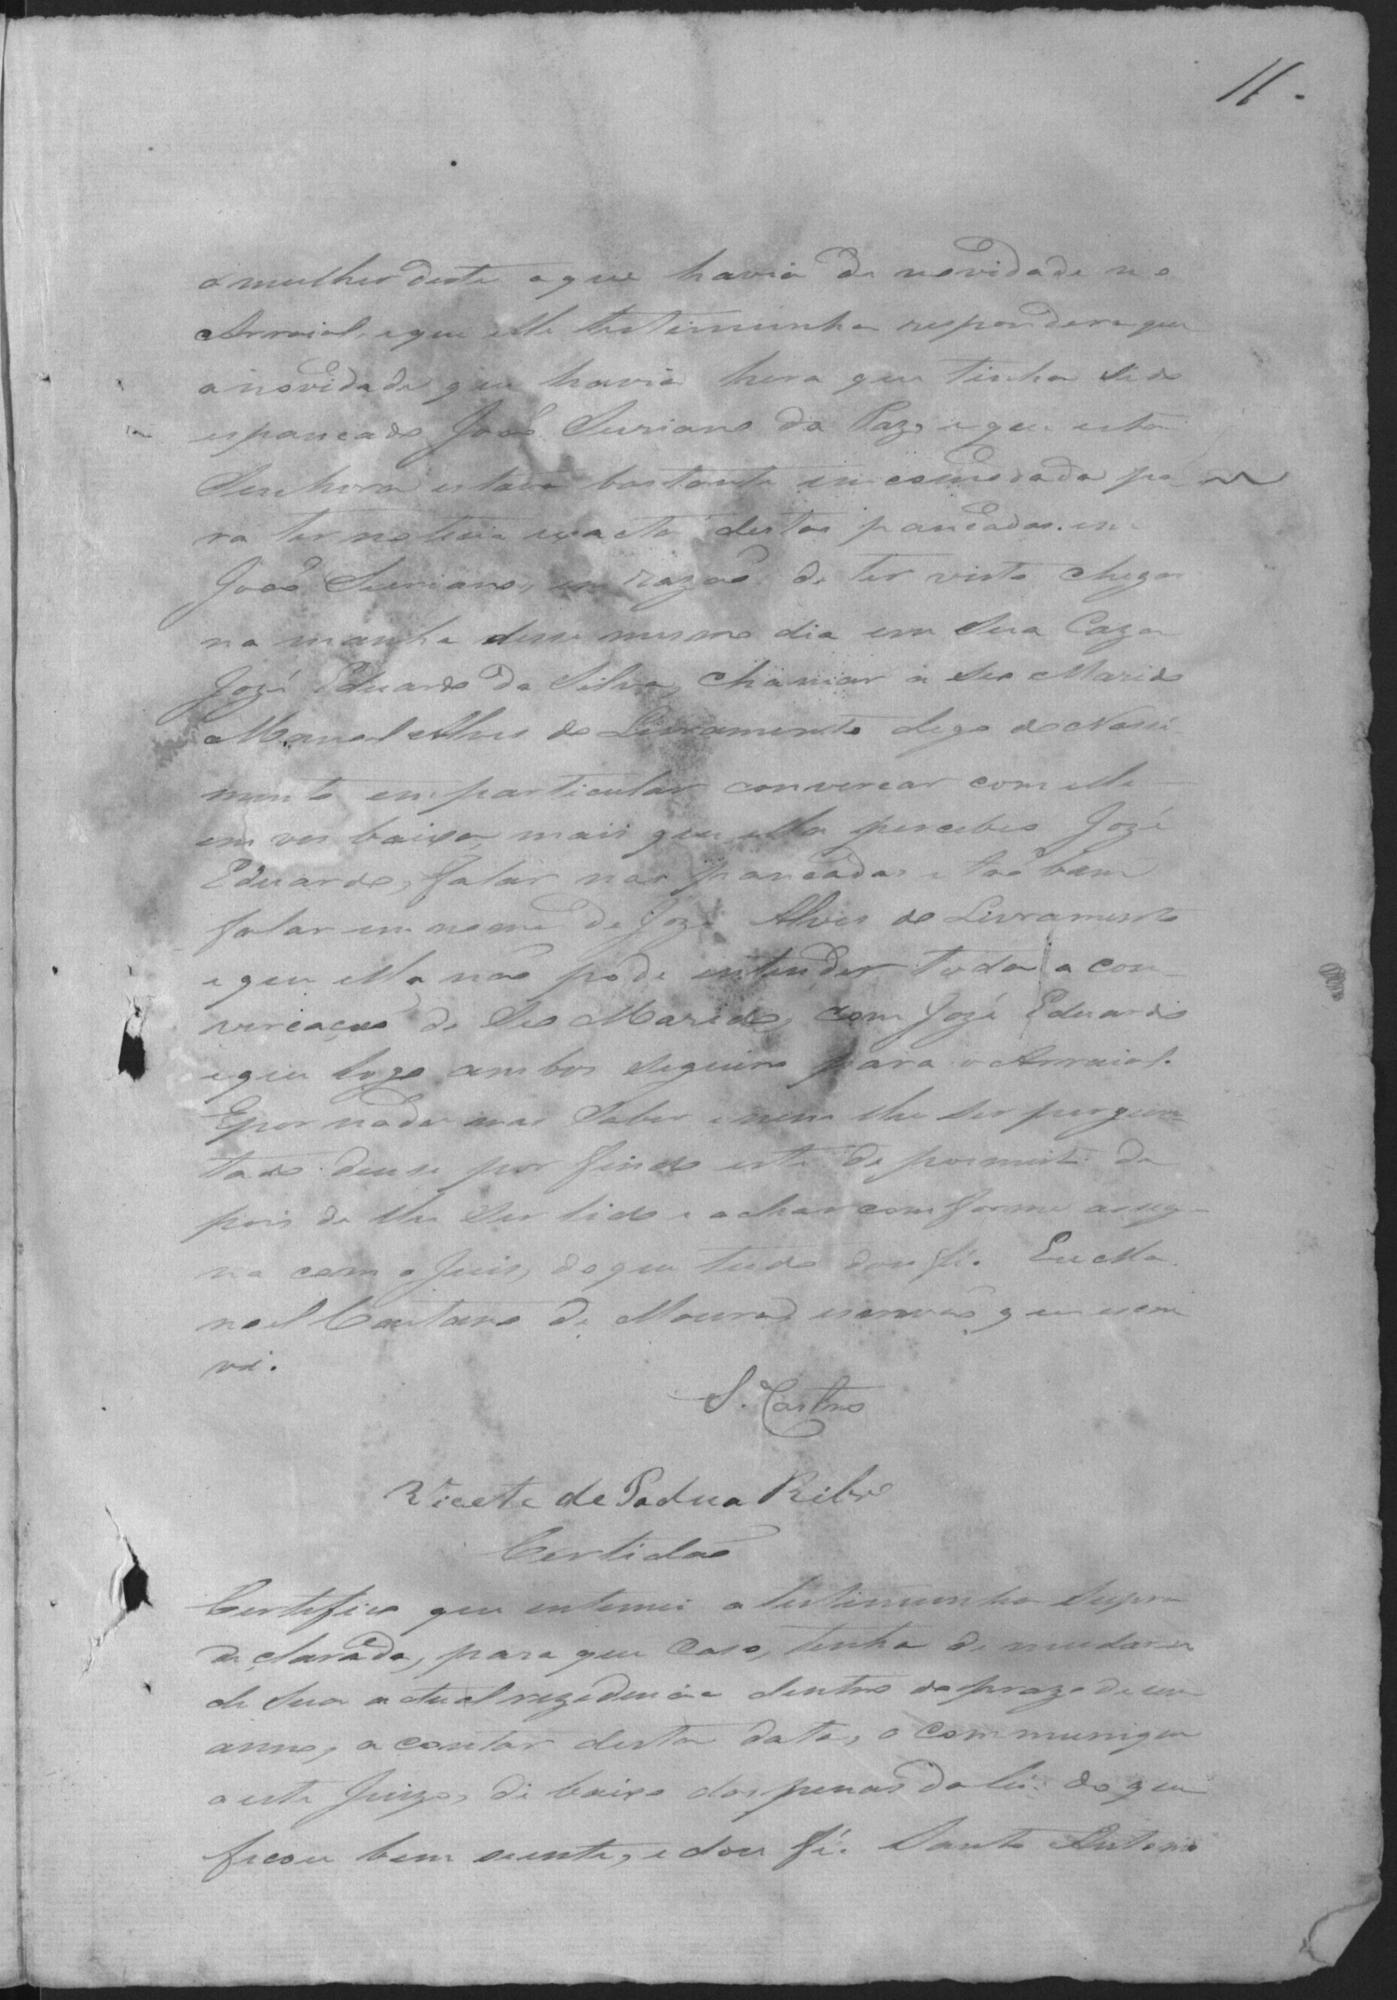 11.
a mulher deste o que havia de novidade no
Arraial, e que elle testimunha respondera que
a novidade que havia hera que tinha sido
espancado João Suriano da Paz, e que esta
Senhora estava bastante incomodada pa
ra ter noticia exacta destas pancadas em
João Suriano, em razão de ter visto chegar
na manha desse mesmo dia em Sua Caza
Jozé Eduardo da Silva, chamar a Seo Marido
Manoel Alves do Livramento digo do Nasci
mento em particular convercar com elle
em vos baixa, mais que ella percebeo Jozé
Eduardo, falar nas pancadas e tão bem
falar em nome de Jozé Alves do Livramento
e que ella não pode entender toda a con
vercação de Seo Marido, com Jozé Eduardo
e que logo ambos seguirão para o Arraial.
E por nada mais Saber e nem lhe Ser pergun
tado deuse por findo este depoimento de
pois de lhe Ser lido e achar conforme assig
na com o Juis, do que tudo dou fé. Eu Ma
noel Caetano de Moura, escrivão que escre
vi.
S. Castro
Vicete de Padua Ribro
Certidão
Certifico que intimei a testimunha Supra
declarada, para que Caso, tenha de mudar-se
de Sua actual rezidencia dentro do prazo de um
anno, a contar desta data, o communique
a este Juizo, debaixo das penas da lei: do que
ficou bem sciente, e dou fé. Santo Antonio